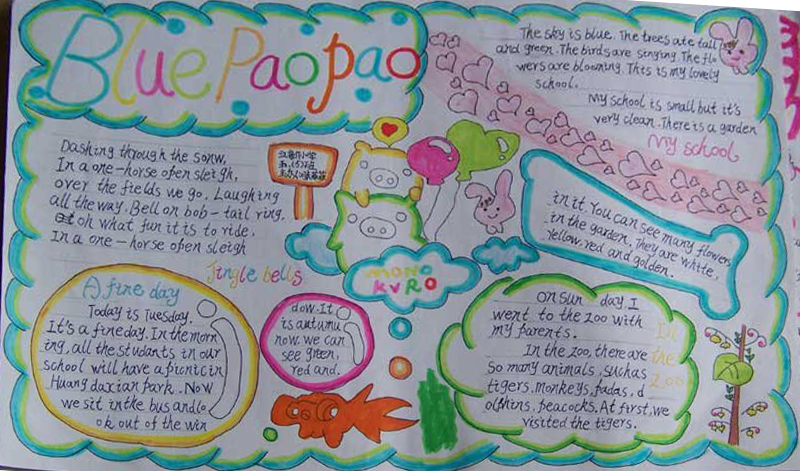 Blue Paopao
Dashing through the sonw,
In a one-horse open sleigh,
over the fields we go. Laughing
all the way. Bell on bob-tail ring.
oh what fun it is to ride.
In a one-horse open sleigh
Jingle bells
The sky is blue. The trees ate tall
and green. The birds are singing. The flo
wers are blooming. This is my lovely
school.
My school is small but it's
very clean. There is a garden
My school
in it You can see many flowers
in the garden. They are white,
yellow, red and golden.
MONO
KVRO
A fine day
Today is Tuesday.
It's a fineday. In the morn
ing, all the studants in our
school will have a picnic in
Huang daxian park. Now
we sit in the bus and lo
ok out of the win
dow. It
is autumn
now. we can
see green,
red and.
On sun day. I
went to the zoo with
my parents.
In the zoo, there are
so many animals, suchas
tigers, monkeys, padas, d
olfhins, peacocks. At first, we
visited the tigers.
In
the
Zoo